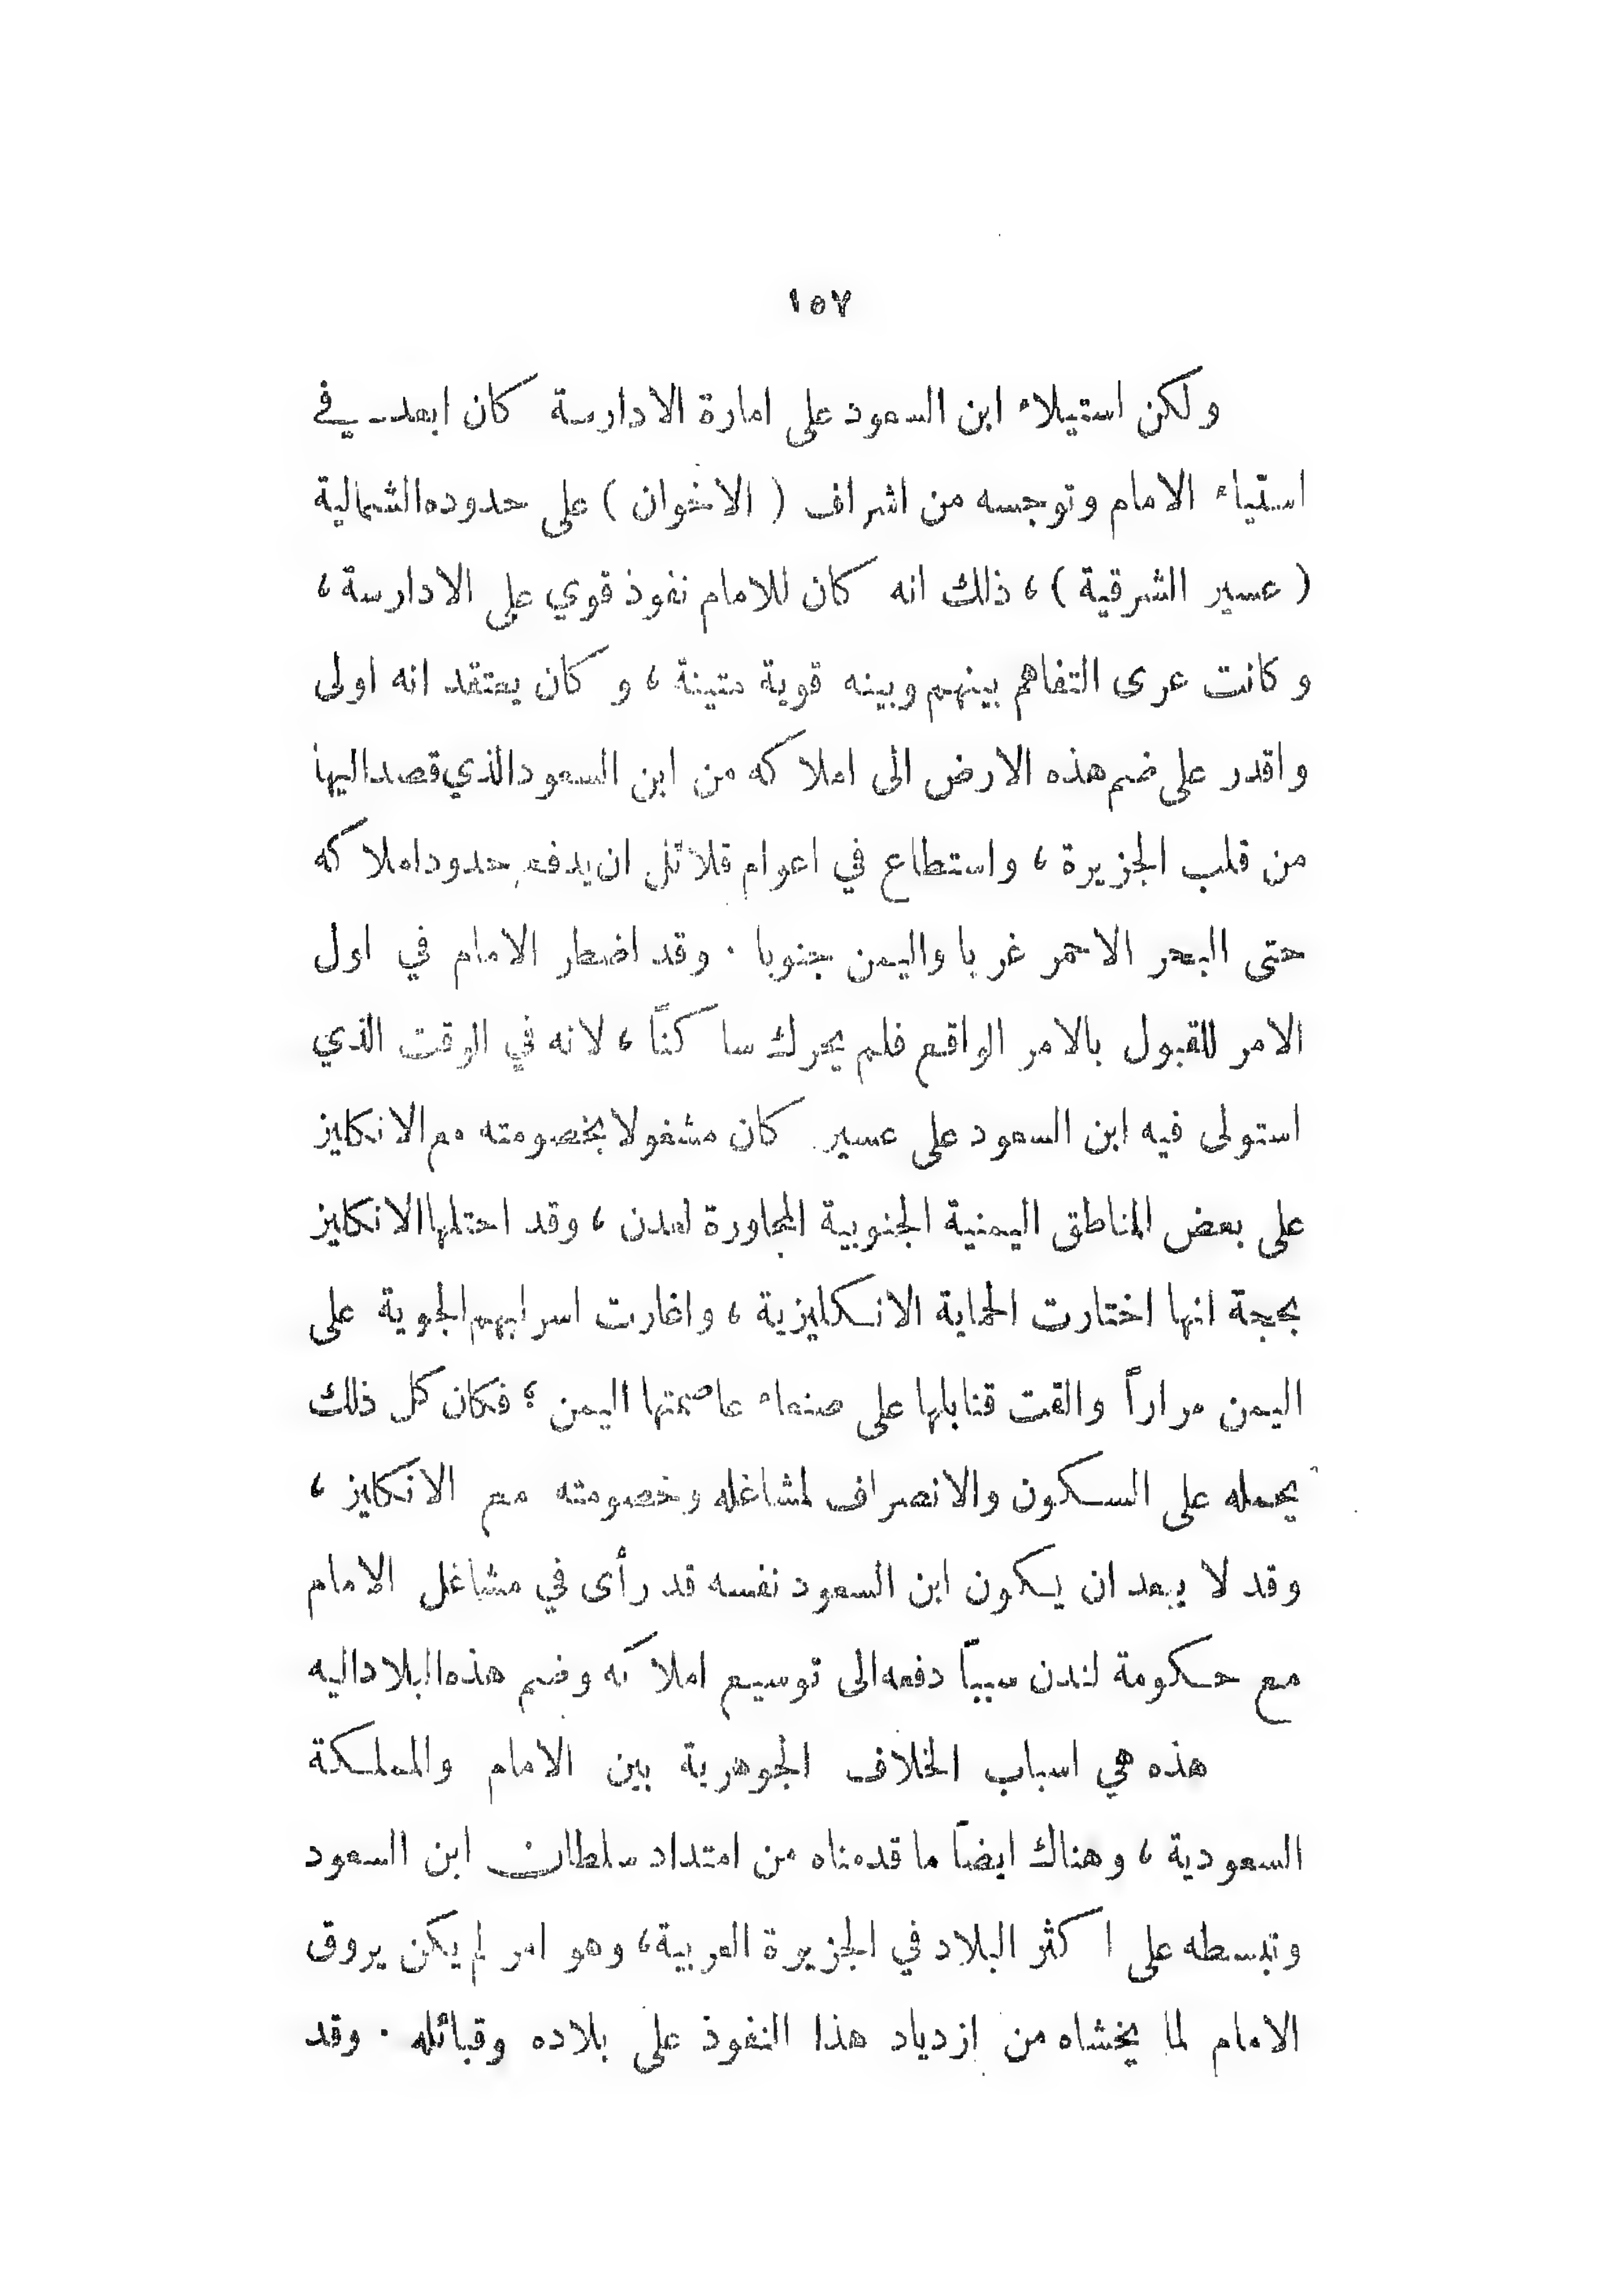 ١٥٧
ولكن استيلاء ابن السعود على امارة الادارسة كان ابعد في
استياء الامام وتوجسه من اشراف ( الاخوان ) على حدوده الشمالية
( عسير الشرقية ) ، ذلك انه كان للامام نفوذ قوي على الادارسة ،
وكانت عرى التفاهم بينهم وبينه قوية متينة ، وكان يعتقد انه اولى
واقدر على ضم هذه الارض الى املاكه من ابن السعود الذي قصد اليها
من قلب الجزيرة ، واستطاع في اعوام قلائل ان يدفع حدود املاكه
حتى البحر الاحمر غربا واليمن جنوبا . وقد اضطر الامام في اول
الامر للقبول بالامر الواقع فلم يحرك ساكنًا ، لانه في الوقت الذي
استولى فيه ابن السعود على عسير كان مشغولا بخصومته مع الانكليز
على بعض المناطق اليمنية الجنوبية المجاورة لعدن ، وقد احتلها الانكليز
بحجة انها اختارت الحماية الانكليزية ، واغارت اسرابهم الجوية على
اليمن مراراً والقت قنابلها على صنعاء عاصمتها اليمن ؛ فكان كل ذلك
يحمله على السكون والانصراف لمشاغله وخصومته مع الانكليز ،
وقد لا يبعد ان يكون ابن السعود نفسه قد رأى في مشاغل الامام
مع حكومة لندن سبباً دفعه الى توسيع املاكه وضم هذه البلاد اليه
هذه هي اسباب الخلاف الجوهرية بين الامام والمملكة
السعودية ، وهناك ايضاً ما قدمناه من امتداد سلطان ابن السعود
وتبسطه على اكثر البلاد في الجزيرة العربية ، وهو امر لم يكن يروق
الامام لما يخشاه من ازدياد هذا النفوذ على بلاده وقبائله . وقد